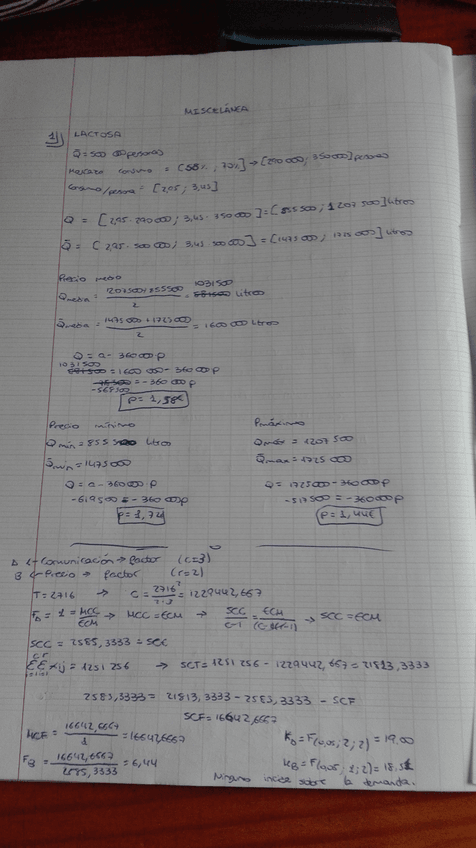 MISCELÁNEA
1) LACTOSA
Q̄ = 500 000 personas
Mercado consumo = [58%, 70%] → [290 000; 350 000] personas
Consumo/persona = [2,95; 3,45]
Q = [2,95 · 290 000; 3,45 · 350 000] = [855 500; 1 207 500] litros
Q̄ = [2,95 · 500 000; 3,45 · 500 000] = [1475 000; 1725 000] litros
Precio medio
Q media = 1207500 + 855500 / 2 = 1031 500 litros
Q̄ media = 1475 000 + 1725 000 / 2 = 1600 000 litros
Q = a - 360 000 p
1031 500 = 1600 000 - 360 000 p
-568 500 = -360 000 p
p = 1,58€
Precio mínimo
Q mín = 855 500 litros
Q̄ mín = 1475 000
Q = a - 360 000 p
-619 500 = -360 000 p
p = 1,72
P máximo
Q máx = 1207 500
Q̄ max = 1725 000
Q = 1725 000 - 360 000 p
-517 500 = -360 000 p
p = 1,44€
A ← Comunicación → factor (c=3)
B ← Precio → factor (r=2)
T = 2716 → C = 2716² / = 1229442,667
= 1 = MCC / ECM → MCC = ECM → SCC / c-1 = ECM / → SCC = ECM
SCC = 2585,3333 =
ΣΣ xij = 1251 256 → SCT = 1251 256 - 1229442,667 = 21813,3333
2585,3333 = 21813,3333 - 2585,3333 - SCF
SCF = 16642,6667
MCF = 16642,6667 / 1 = 16642,6667
F_B = 16642,6667 / 2585,3333 = 6,44
= F(0,05; 2; 2) = 19,00
K_B = F(0,05; 1; 2) = 18,51
Ninguno incide sobre la demanda.